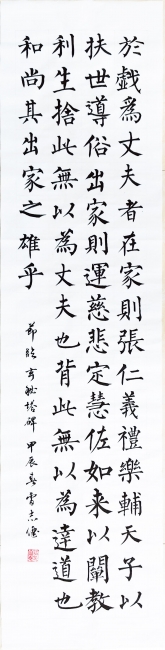 於戲為丈夫者在家則張仁義禮樂輔天子以
扶世導俗出家則運慈悲定慧佐如来以闡教
利生捨此無以為丈夫也背此無以為達道也
和尚其出家之雄乎
節臨玄秘塔碑 甲辰春雪志